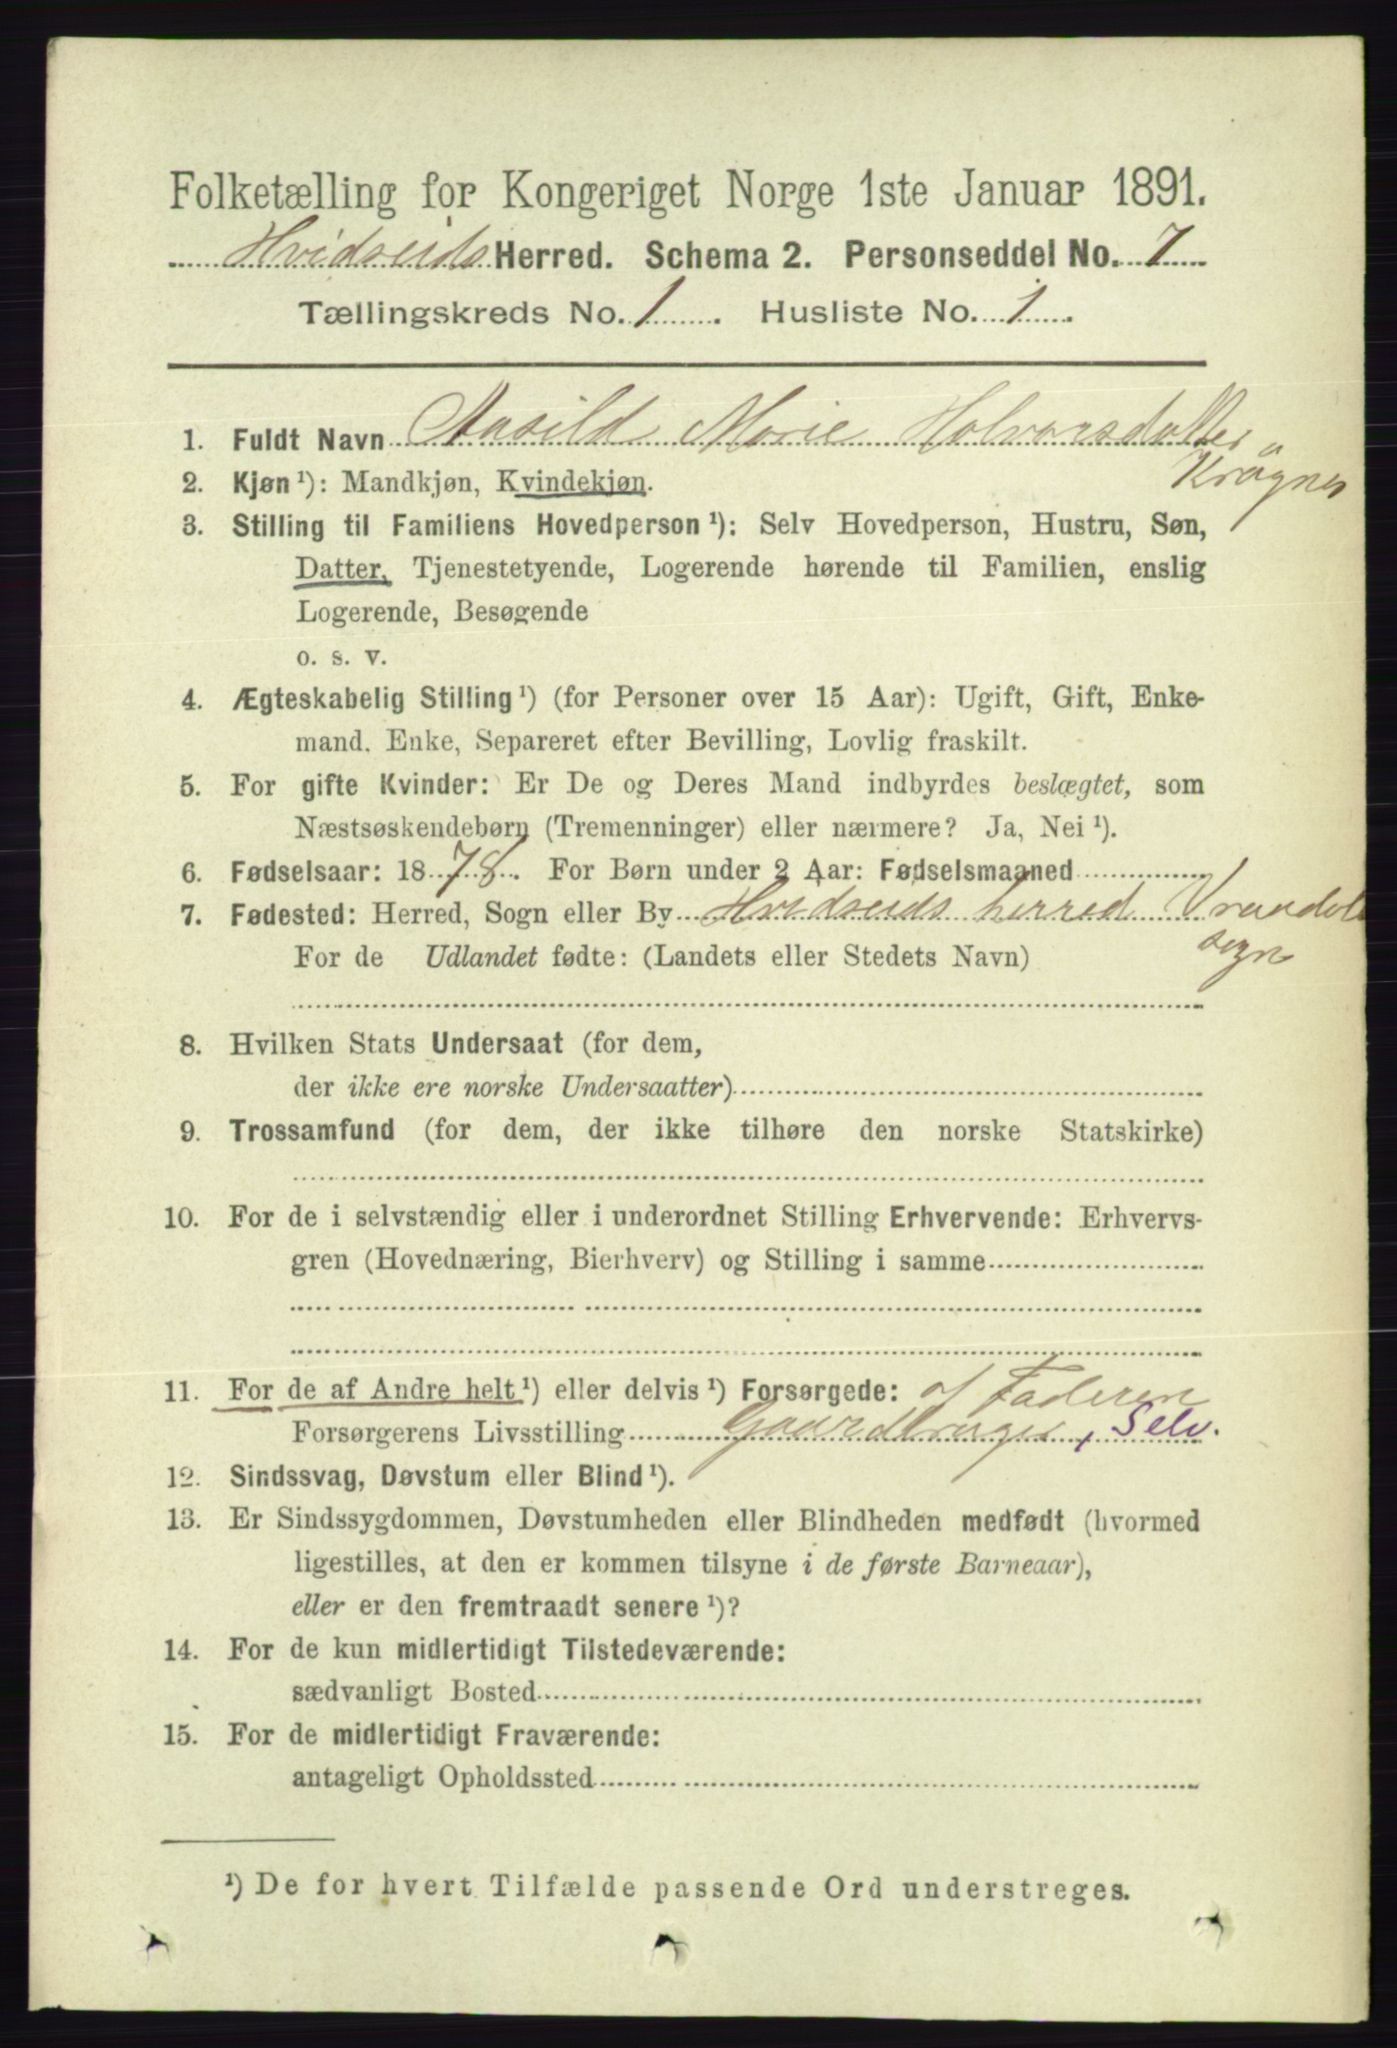 Folketælling for Kongeriget Norge 1ste Januar 1891.
Hvidseids Herred. Schema 2. Personseddel No. 7
Tællingskreds No. 1. Husliste No. 1.
1. Fuldt Navn Aasild Marie Halvorsdatter
Krågnes
2. Kjøn ¹): Mandkjøn, Kvindekjøn.
3. Stilling til Familiens Hovedperson ¹): Selv Hovedperson, Hustru, Søn,
Datter, Tjenestetyende, Logerende hørende til Familien, enslig
Logerende, Besøgende
o. s. v.
4. Ægteskabelig Stilling ¹) (for Personer over 15 Aar): Ugift, Gift, Enke-
mand, Enke, Separeret efter Bevilling, Lovlig fraskilt.
5. For gifte Kvinder: Er De og Deres Mand indbyrdes beslægtet, som
Næstsøskendebørn (Tremenninger) eller nærmere? Ja, Nei ¹).
6. Fødselsaar: 1878. For Børn under 2 Aar: Fødselsmaaned
7. Fødested: Herred, Sogn eller By Hvidseids herred Vraadals
sogn
For de Udlandet fødte: (Landets eller Stedets Navn)
8. Hvilken Stats Undersaat (for dem,
der ikke ere norske Undersaatter)
9. Trossamfund (for dem, der ikke tilhøre den norske Statskirke)
10. For de i selvstændig eller i underordnet Stilling Erhvervende: Erhvervs-
gren (Hovednæring, Bierhverv) og Stilling i samme
11. For de af Andre helt ¹) eller delvis ¹) Forsørgede: af Faderen
Forsørgerens Livsstilling Gaardbruger, Selv.
12. Sindssvag, Døvstum eller Blind ¹).
13. Er Sindssygdommen, Døvstumheden eller Blindheden medfødt (hvormed
ligestilles, at den er kommen tilsyne i de første Barneaar),
eller er den fremtraadt senere ¹)?
14. For de kun midlertidigt Tilstedeværende:
sædvanligt Bosted
15. For de midlertidigt Fraværende:
antageligt Opholdssted
¹) De for hvert Tilfælde passende Ord understreges.